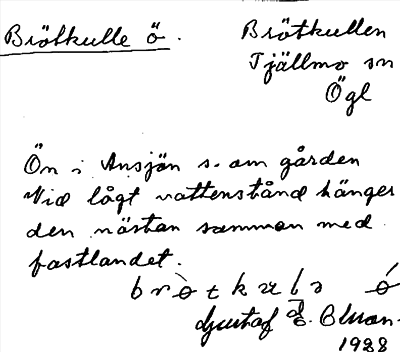 Brötkulle ö.
Brötkullen
Tjällmo sn
Ögl
Ön i Ansjön s. om gården
Vid lågt vattenstånd hänger
den nästan samman med
fastlandet.
Gustaf
1928